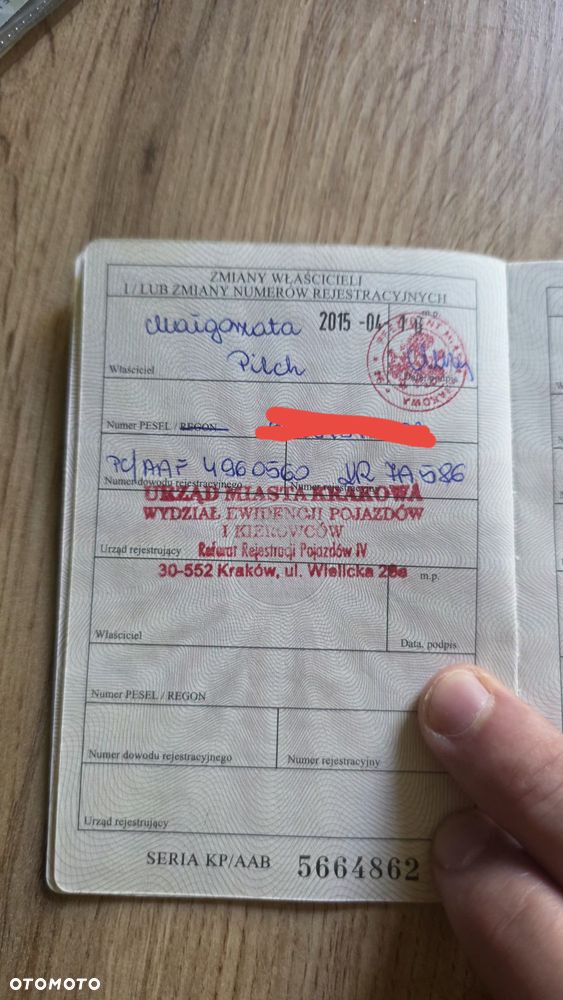 ZMIANY WŁAŚCICIELI
I / LUB ZMIANY NUMERÓW REJESTRACYJNYCH
m.p.
Małgorzata 2015 -04-
Pilch
Właściciel
Data, podpis
Numer PESEL / REGON
PC/AAF 4960560 KR 7A586
Numer dowodu rejestracyjnego Numer rejestracyjny
URZĄD MIASTA KRAKOWA
WYDZIAŁ EWIDENCJI POJAZDÓW
I KIEROWCÓW
Urząd rejestrujący Referat Rejestracji Pojazdów IV
30-552 Kraków, ul. Wielicka 28a
m.p.
Właściciel Data, podpis
Numer PESEL / REGON
Numer dowodu rejestracyjnego Numer rejestracyjny
Urząd rejestrujący
SERIA KP/AAB 5664862
OTOMOTO